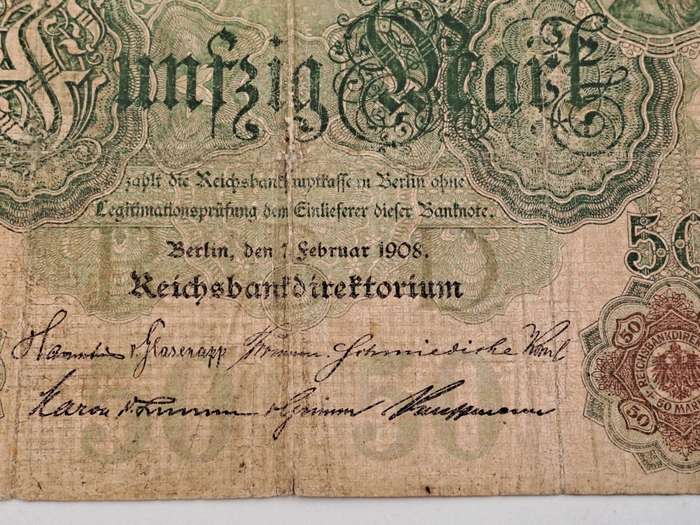 Fünfzig Mark
zahlt die Reichsbankhauptkasse in Berlin ohne
Legitimationsprüfung dem Einlieferer dieser Banknote.
Berlin, den 7 Februar 1908.
Reichsbankdirektorium
v. Glasenapp Schmiedicke Korn
v. Grimm Kauffmann
50 50
50
REICHSBANKDIRE
50 MA
50
50